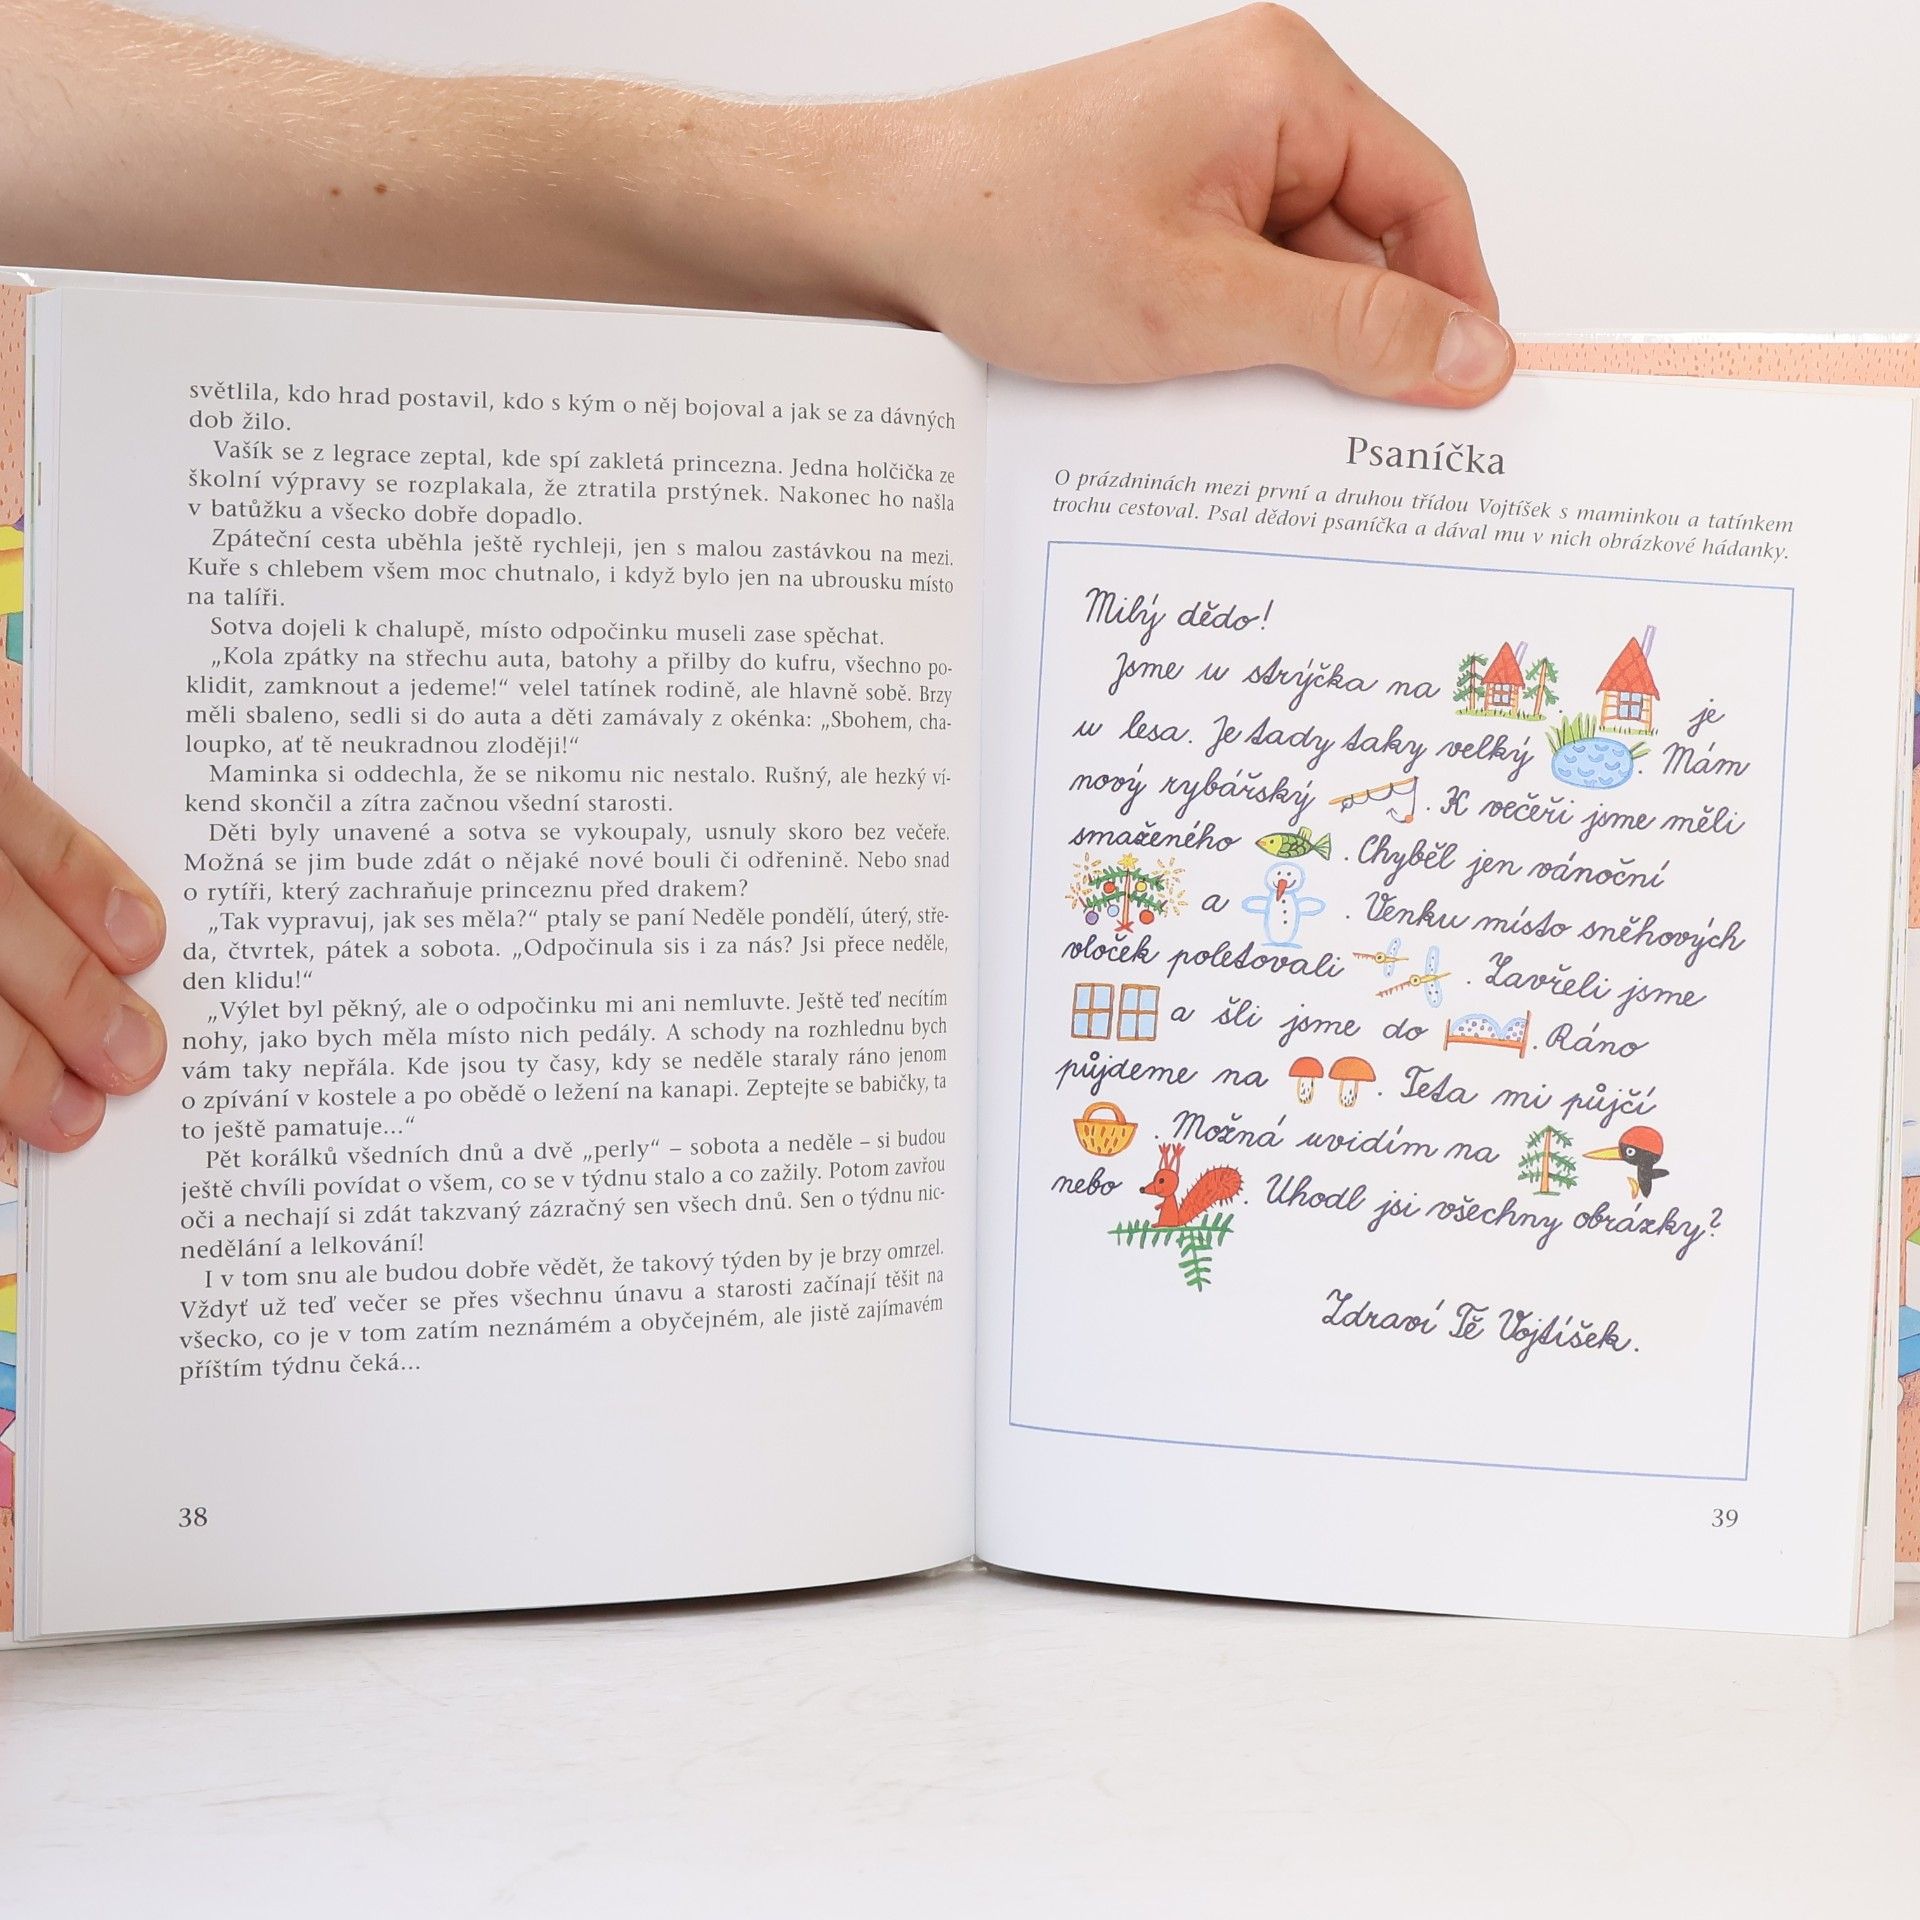 světlila, kdo hrad postavil, kdo s kým o něj bojoval a jak se za dávných
dob žilo.
Vašík se z legrace zeptal, kde spí zakletá princezna. Jedna holčička ze
školní výpravy se rozplakala, že ztratila prstýnek. Nakonec ho našla
v batůžku a všecko dobře dopadlo.
Zpáteční cesta uběhla ještě rychleji, jen s malou zastávkou na mezi.
Kuře s chlebem všem moc chutnalo, i když bylo jen na ubrousku místo
na talíři.
Sotva dojeli k chalupě, místo odpočinku museli zase spěchat.
„Kola zpátky na střechu auta, batohy a přilby do kufru, všechno po-
klidit, zamknout a jedeme!“ velel tatínek rodině, ale hlavně sobě. Brzy
měli sbaleno, sedli si do auta a děti zamávaly z okénka: „Sbohem, cha-
loupko, ať tě neukradnou zloději!“
Maminka si oddechla, že se nikomu nic nestalo. Rušný, ale hezký ví-
kend skončil a zítra začnou všední starosti.
Děti byly unavené a sotva se vykoupaly, usnuly skoro bez večeře.
Možná se jim bude zdát o nějaké nové bouli či odřenině. Nebo snad
o rytíři, který zachraňuje princeznu před drakem?
„Tak vypravuj, jak ses měla?“ ptaly se paní Neděle pondělí, úterý, stře-
da, čtvrtek, pátek a sobota. „Odpočinula sis i za nás? Jsi přece neděle,
den klidu!“
„Výlet byl pěkný, ale o odpočinku mi ani nemluvte. Ještě teď necítím
nohy, jako bych měla místo nich pedály. A schody na rozhlednu bych
vám taky nepřála. Kde jsou ty časy, kdy se neděle staraly ráno jenom
o zpívání v kostele a po obědě o ležení na kanapi. Zeptejte se babičky, ta
to ještě pamatuje...“
Pět korálků všedních dnů a dvě „perly“ – sobota a neděle – si budou
ještě chvíli povídat o všem, co se v týdnu stalo a co zažily. Potom zavřou
oči a nechají si zdát takzvaný zázračný sen všech dnů. Sen o týdnu nic-
nedělání a lelkování!
I v tom snu ale budou dobře vědět, že takový týden by je brzy omrzel.
Vždyť už teď večer se přes všechnu únavu a starosti začínají těšit na
všecko, co je v tom zatím neznámém a obyčejném, ale jistě zajímavém
příštím týdnu čeká...
38
Psaníčka
O prázdninách mezi první a druhou třídou Vojtíšek s maminkou a tatínkem
trochu cestoval. Psal dědovi psaníčka a dával mu v nich obrázkové hádanky.
Milý dědo!
Jsme u strýčka na . je
u lesa. Je tady taky velký . Mám
nový rybářský . K večeři jsme měli
smaženého . Chyběl jen vánoční
a . Venku místo sněhových
vloček poletovali . Zavřeli jsme
a šli jsme do . Ráno
půjdeme na . Teta mi půjčí
. Možná uvidím na
nebo . Uhodl jsi všechny obrázky?
Zdraví Tě Vojtíšek.
39